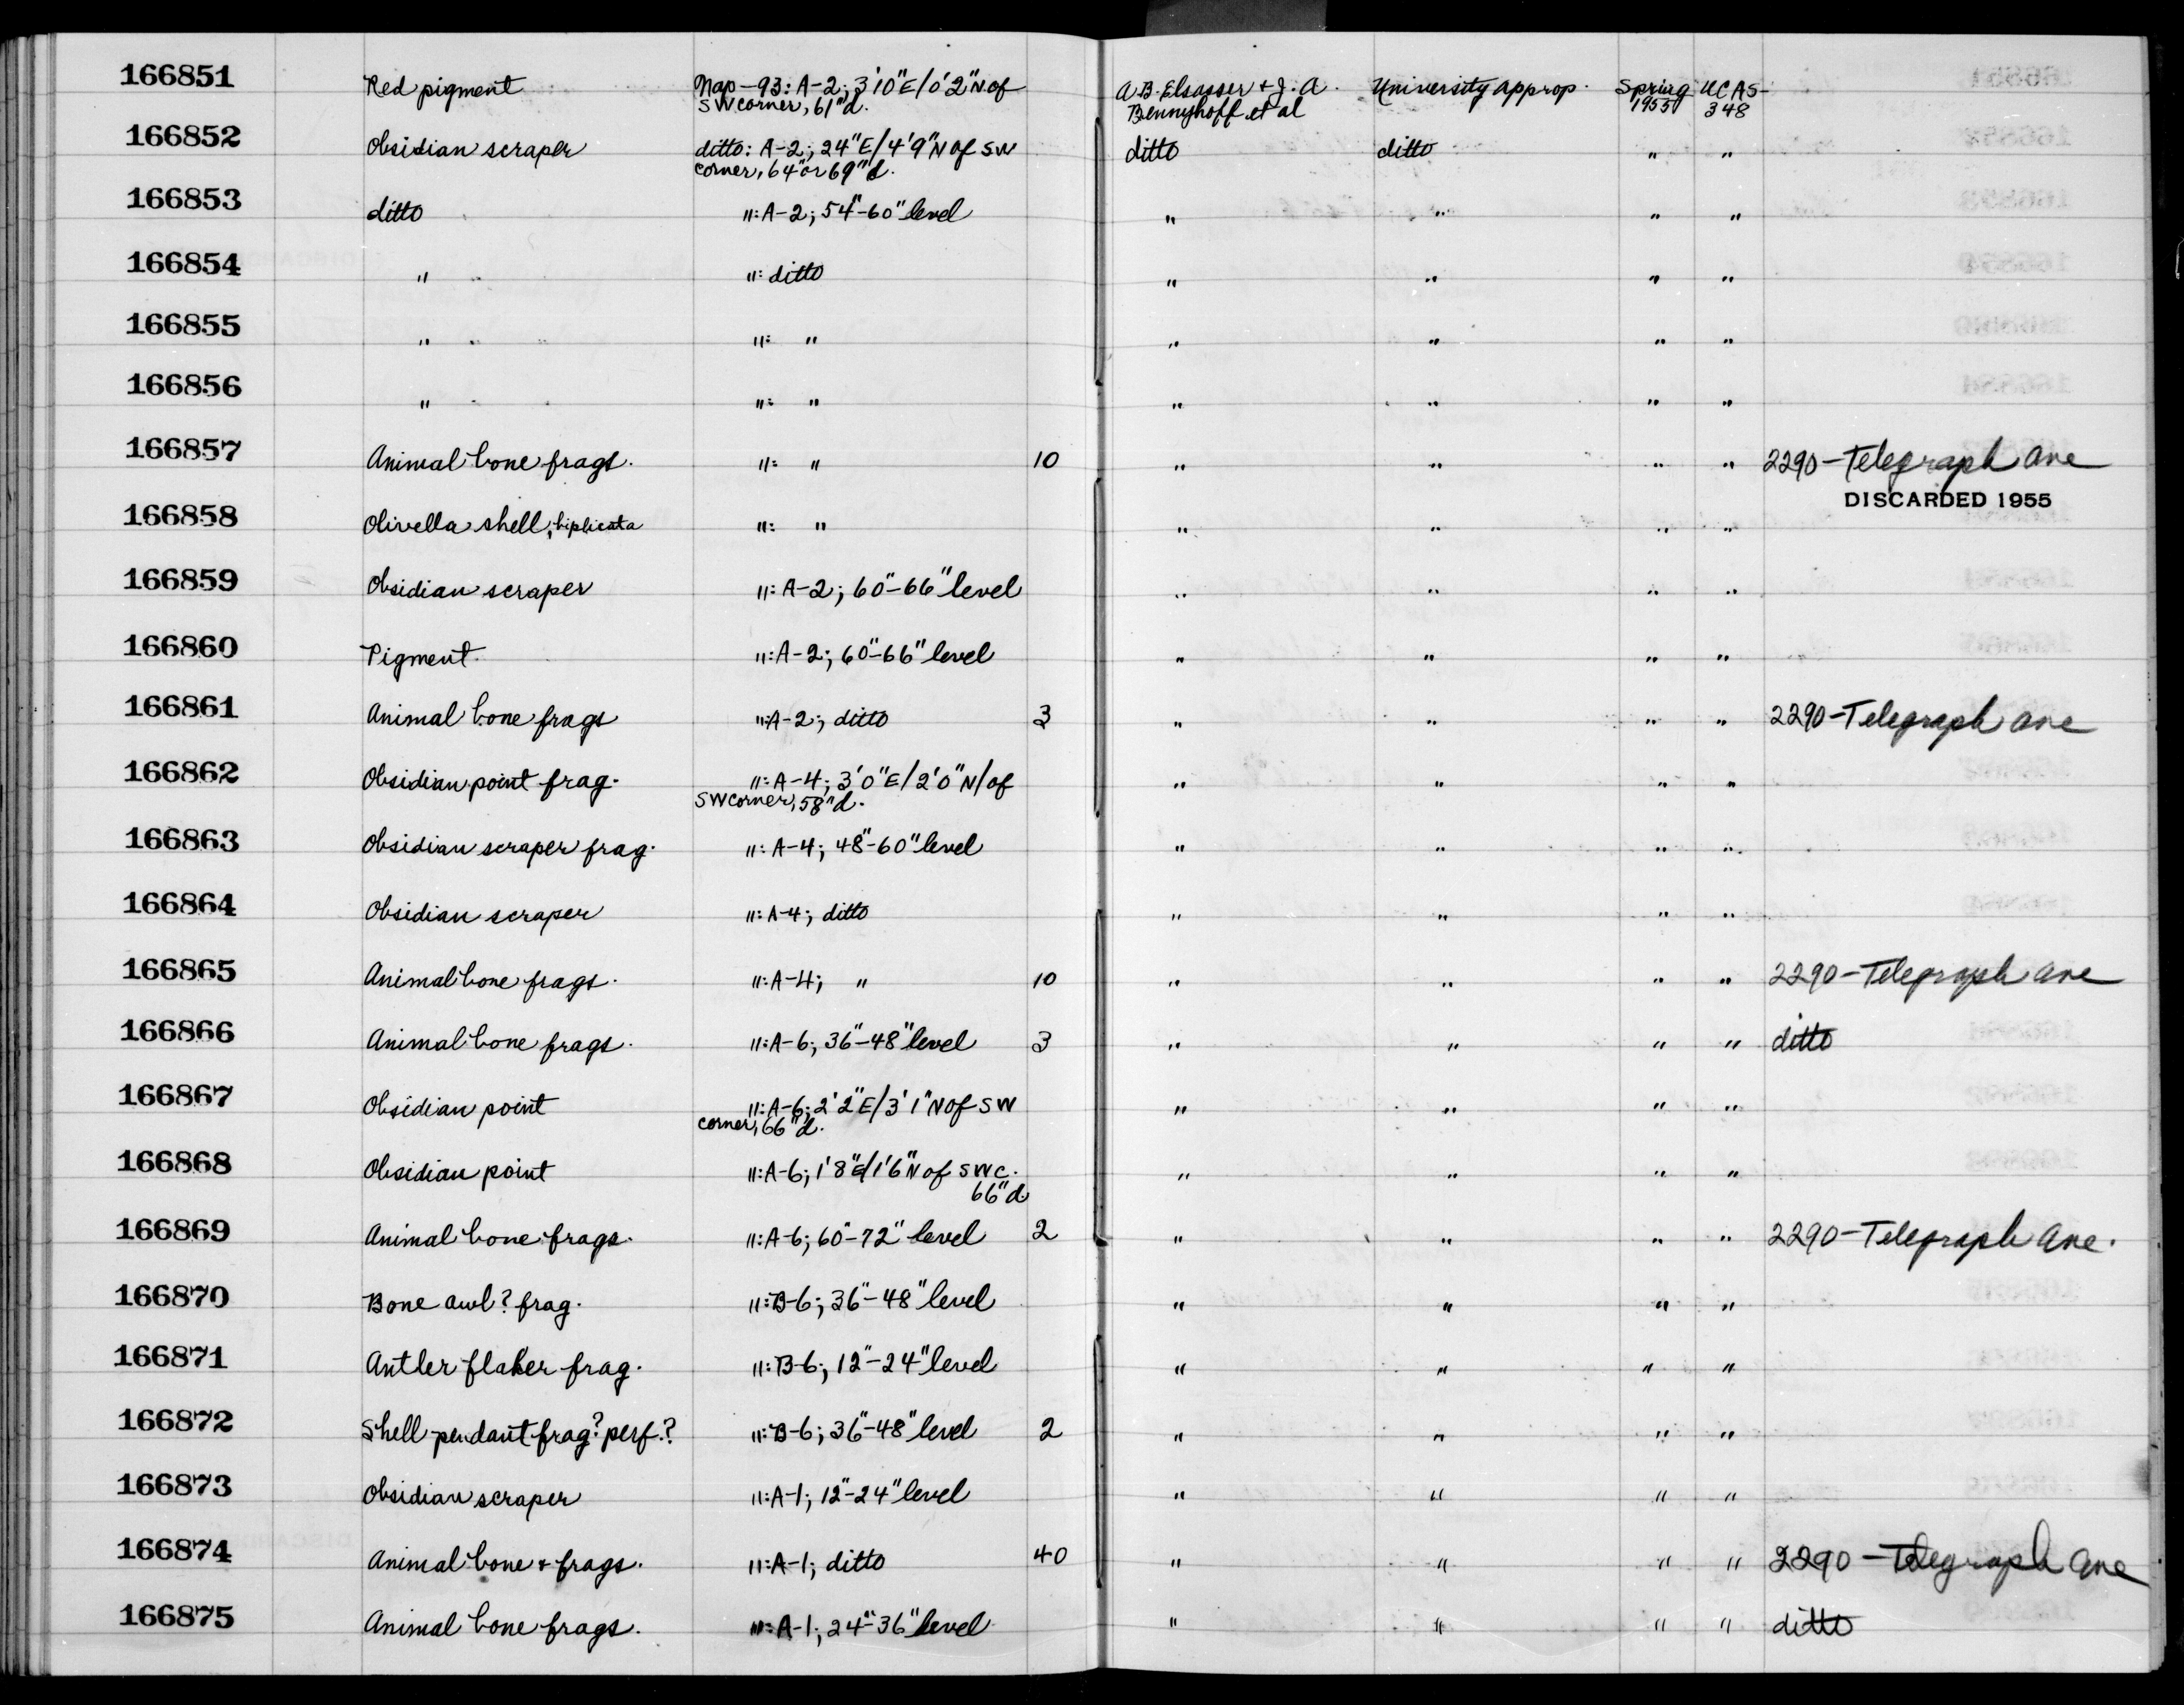 166851 Red pigment Nap-93: A-2; 3'10"E/0'2"N of A.B. Elsasser + J.A. University approp. Spring UCAS-
SW corner, 61"d. Bennyhoff et al 1955 348
166852 Obsidian scraper ditto: A-2; 24"E/4'9"N of SW ditto ditto " "
corner, 64" or 69"d.
166853 ditto ": A-2; 54"-60" level " " " "
166854 " ": ditto " " " "
166855 " ": " " " " "
166856 " ": " " " " "
166857 Animal bone frags. ": " 10 " " " " 2290-Telegraph Ave
DISCARDED 1955
166858 Olivella shell, biplicata ": " " " " "
166859 Obsidian scraper ": A-2; 60"-66" level " " " "
166860 Pigment ": A-2; 60"-66" level " " " "
166861 Animal bone frags ": A-2; ditto 3 " " " " 2290-Telegraph Ave
166862 Obsidian point frag. ": A-4; 3'0"E/2'0"N/of " " " "
SW corner, 58"d.
166863 Obsidian scraper frag. ": A-4; 48"-60" level " " " "
166864 Obsidian scraper ": A-4; ditto " " " "
166865 Animal bone frags. ": A-4; " 10 " " " " 2290-Telegraph Ave
166866 Animal bone frags. ": A-6; 36"-48" level 3 " " " " ditto
166867 Obsidian point ": A-6; 2'2"E/3'1"N of SW " " " "
corner, 66"d.
166868 Obsidian point ": A-6; 1'8"E/1'6"N of SWC. " " " "
66"d.
166869 Animal bone frags. ": A-6; 60"-72" level 2 " " " " 2290-Telegraph Ave.
166870 Bone awl? frag. ": B-6; 36"-48" level " " " "
166871 Antler flaker frag. ": B-6; 12"-24" level " " " "
166872 Shell pendant frag? perf.? ": B-6; 36"-48" level 2 " " " "
166873 Obsidian scraper ": A-1; 12"-24" level " " " "
166874 Animal bone + frags. ": A-1; ditto 40 " " " " 2290-Telegraph Ave
166875 Animal bone frags. ": A-1; 24"-36" level " " " " ditto